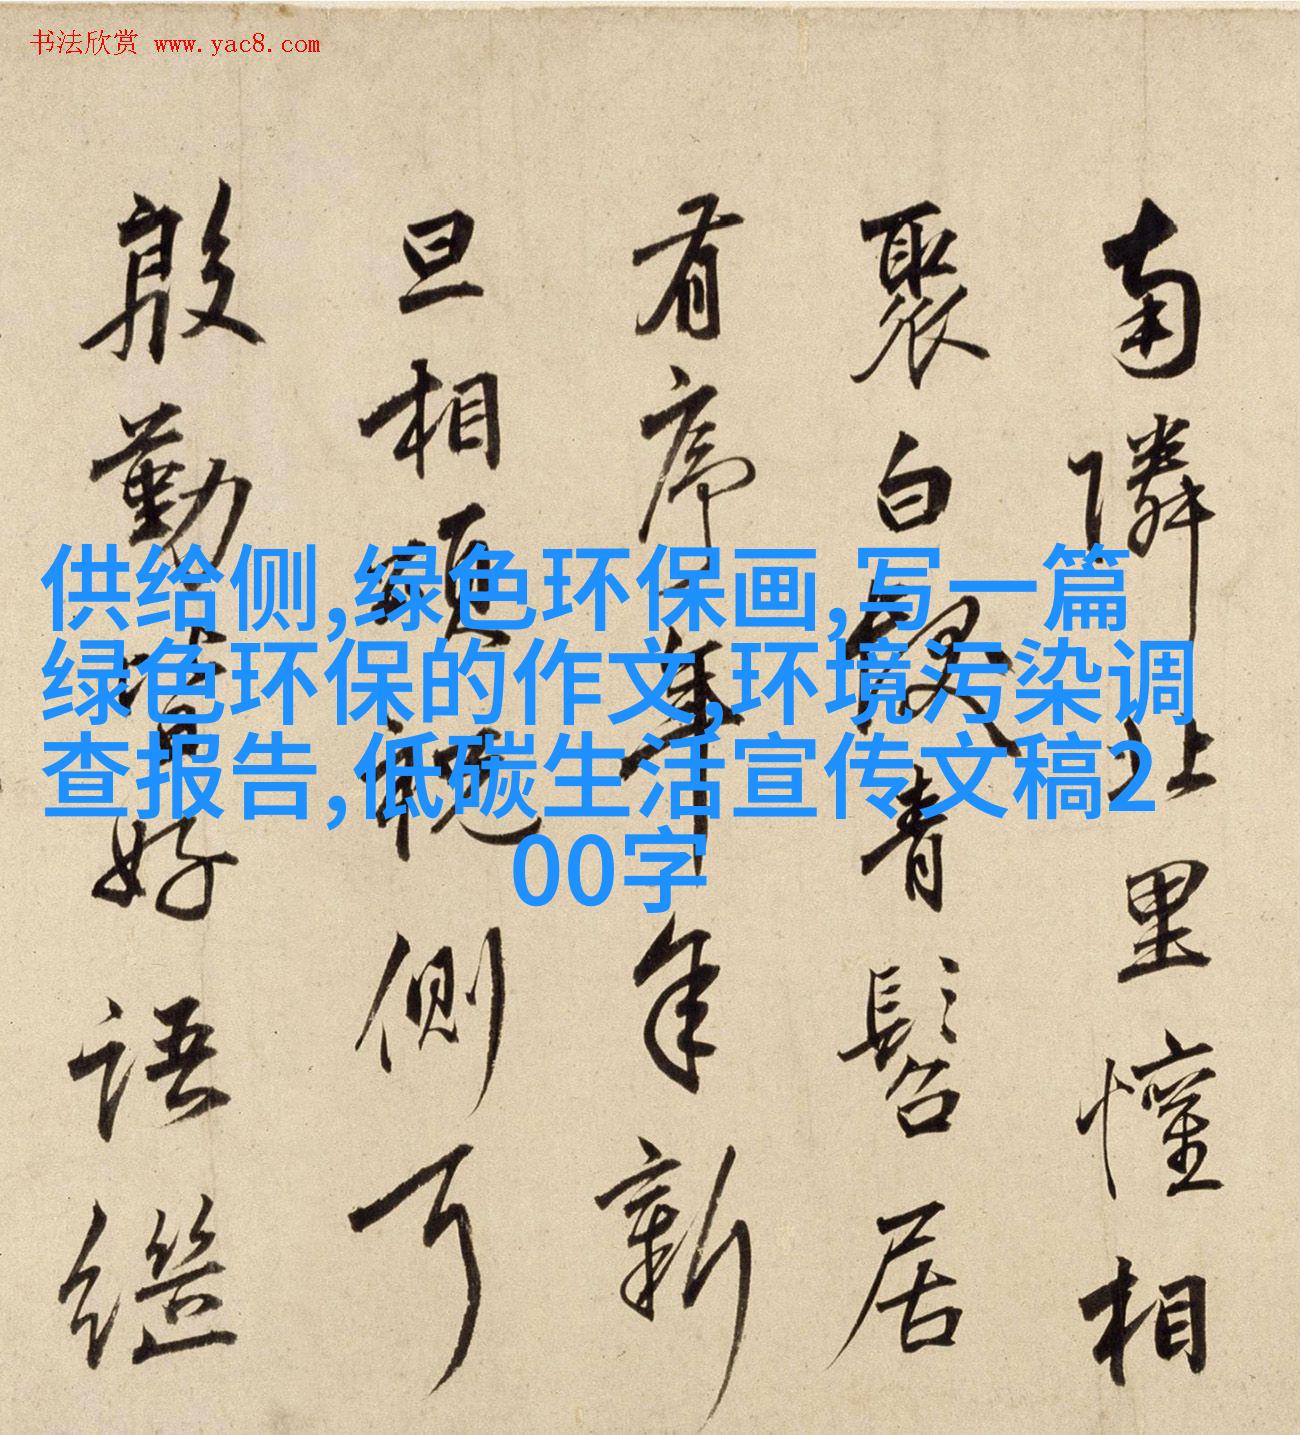 书法欣赏 www.yac8.com
供给侧,绿色环保画,写一篇
绿色环保的作文,环境污染调
查报告,低碳生活宣传文稿2
00字
南隣让里懽相
聚白叟青髫居
有序年年新
旦相頭側可
殷勤好語继